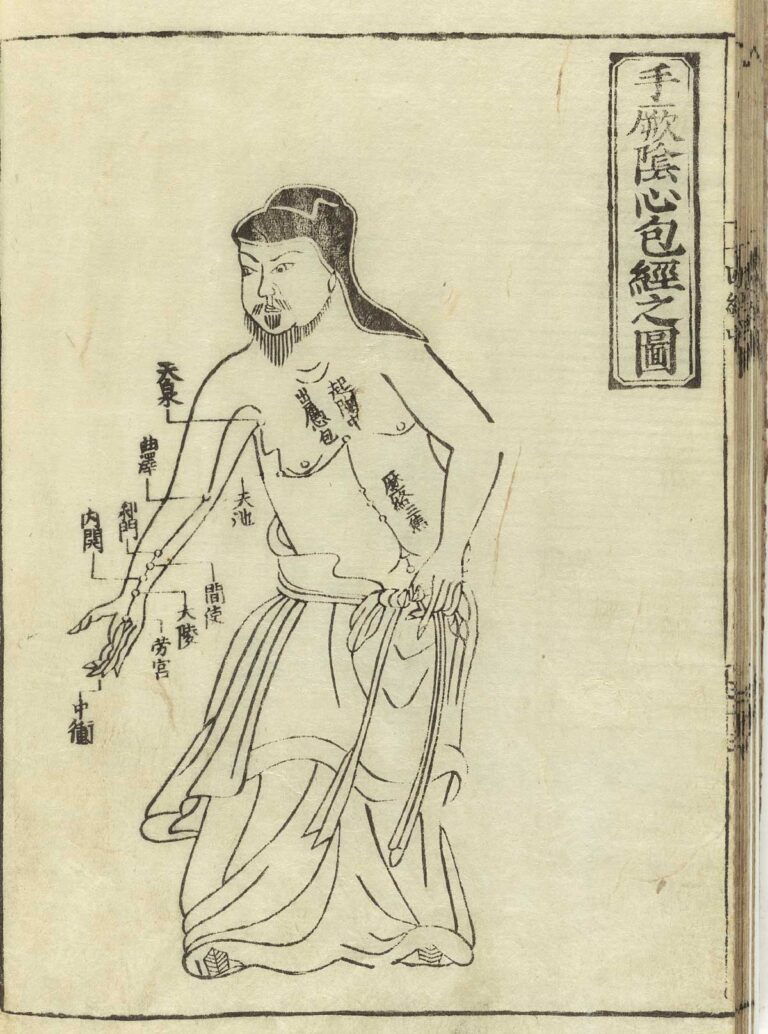 手厥陰心包經之圖
起胸中
出屬心包
歷絡三焦
天泉
曲澤
天池
郄門
内關
間使
大陵
勞宮
中衝